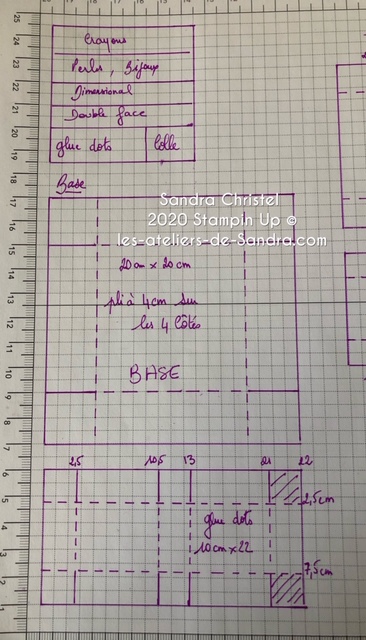 Crayons
Perles, Bijoux
Dimensional
Double face
glue dots
Colle
Base
Sandra Christel
2020 Stampin Up ©
les-ateliers-de-Sandra.com
20cm x 20cm
pli à 4cm sur
les 4 côtés
BASE
2,5 10,5 13 21 22
2,5cm
glue dots
10cm x 22
7,5cm
25
24
23
22
21
20
19
18
17
16
15
14
13
12
11
10
9
8
7
6
5
4
3
2
1